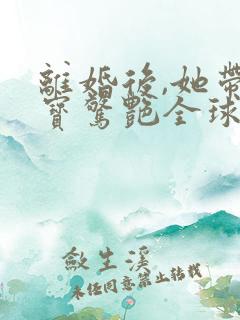 離婚後,她帶
寶驚艷全球
斂生溪
未經同意禁止轉載